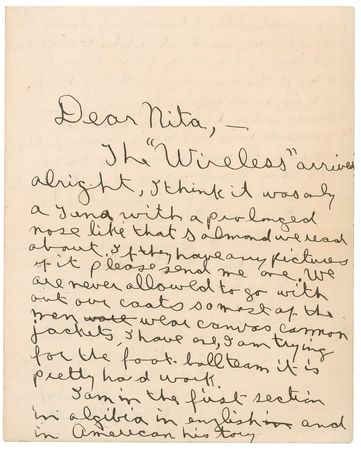 Dear Nita, —
The "Wireless" arrived
alright, I think it was only
a Tuna with a prolonged
nose like that Salmond we read
about. If they have any pictures
of it please send me one. We
are never allowed to go with
out our coats so most of the
men wore wear canvas cannon
jackets, I have one, I am trying
for the foot ball team it is
pretty hard work.
I am in the first section
in algibia in english in and
in American history